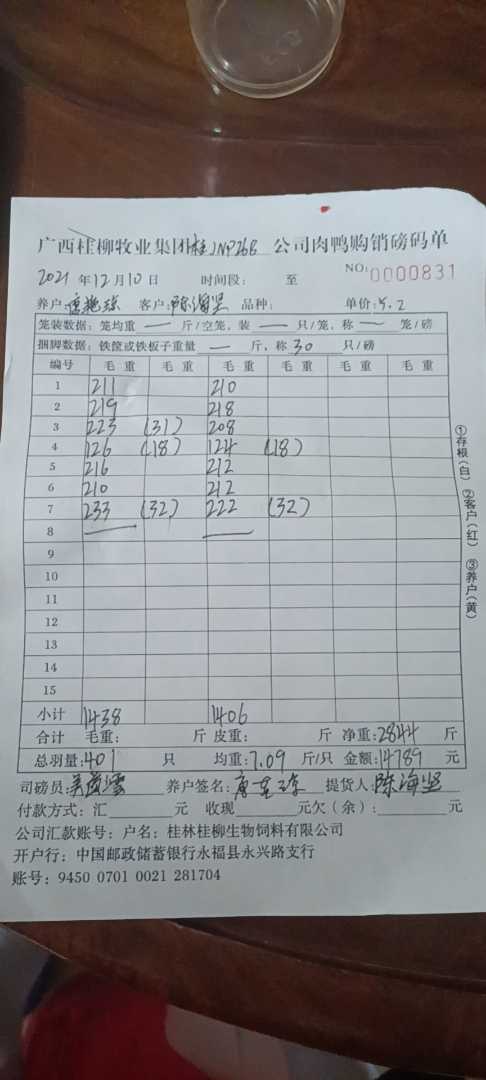 广西桂柳牧业集团桂JNP26B 公司肉鸭购销磅码单
2021 年 12 月 10 日 时间段: 至 NO: 0000831
养户: 客户: 陈海坚 品种: 单价: 5.2
笼装数据: 笼均重 — 斤/空笼, 装 — 只/笼, 称 — 笼/磅
捆脚数据: 铁筐或铁板子重量 — 斤, 称 30 只/磅
编号 毛 重 毛 重 毛 重 毛 重 毛 重 毛 重
1 211 210
2 219 218
3 223 (31) 208
4 126 (18) 124 (18)
5 216 212
6 210 212
7 233 (32) 222 (32)
8 — —
9
10
11
12
13
14
15
小计 1438 1406
合计 毛重: 斤 皮重: 斤 净重: 2844 斤
总羽量: 401 只 均重: 7.09 斤/只 金额: 14789 元
司磅员: 养户签名: 提货人: 陈海坚
付款方式: 汇 元 收现 元欠(余): 元
公司汇款账号: 户名: 桂林桂柳生物饲料有限公司
开户行: 中国邮政储蓄银行永福县永兴路支行
账号: 9450 0701 0021 281704
①存根(白) ②客户(红) ③养户(黄)